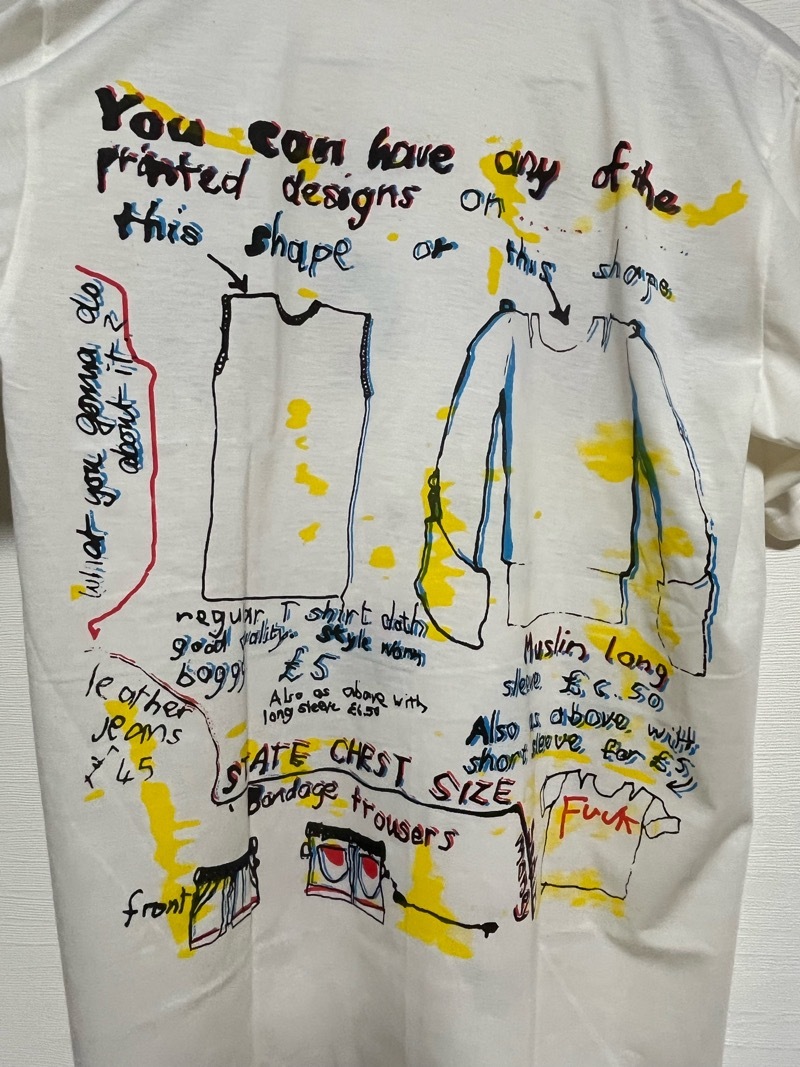 You can have any of the
printed designs on ......
this shape or this shape
What you gonna do
about it?
regular T shirt cloth
good quality. style worn
baggy £5
Also as above with
long sleeve £6.50
Muslin long
sleeve £6.50
Also as above with
short sleeve for £5
leather
jeans
45
STATE CHEST SIZE
Bondage trousers
front
Fuck